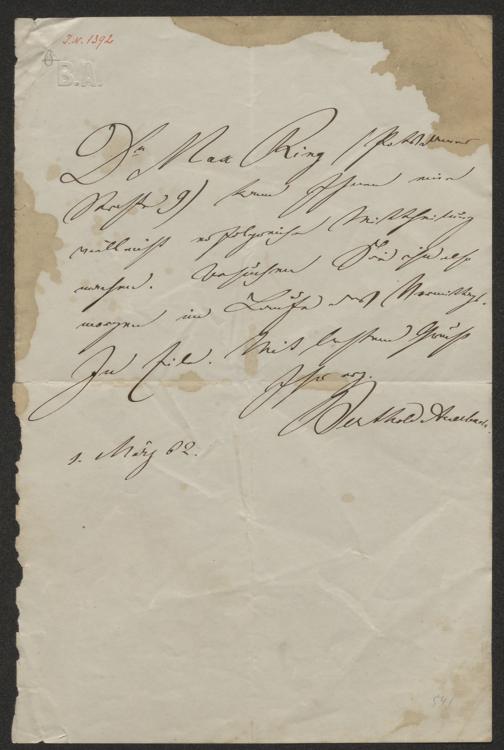 I.N. 1392
B.A.
Dr. Max Ring (Potsdamer
Straße 9) kann Ihnen eine
vielleicht erfolgreiche Mittheilung
machen. Besuchen Sie ihn also
morgen im Laufe des Vormittags.
In Eile. Mit bestem Gruß
Ihr erg.
Berthold Auerbach.
1. März 62.
541